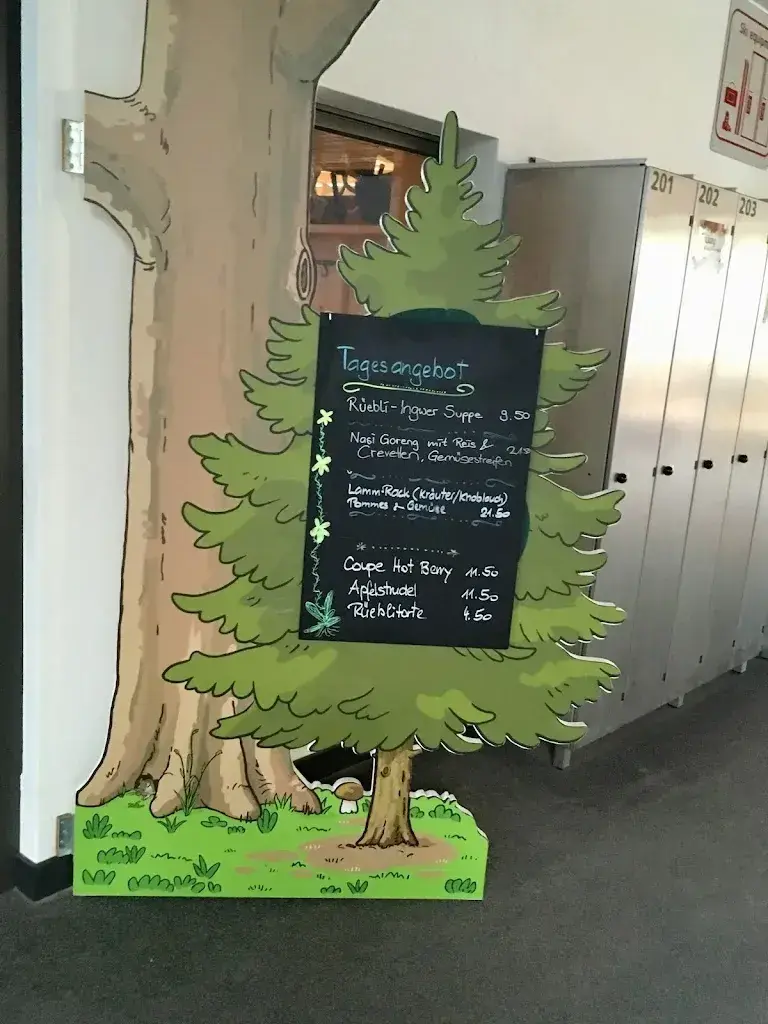 Ski equipm
201
202
203
Tagesangebot
Rüebli-Ingwer Suppe 9.50
Nasi Goreng mit Reis &
Crevetten, Gemüsestreifen
Lamm-Rack (Kräuter/Knoblauch)
Pommes & Gemüse 21.50
Coupe Hot Berry 11.50
Apfelstrudel 11.50
Rüeblitorte 4.50